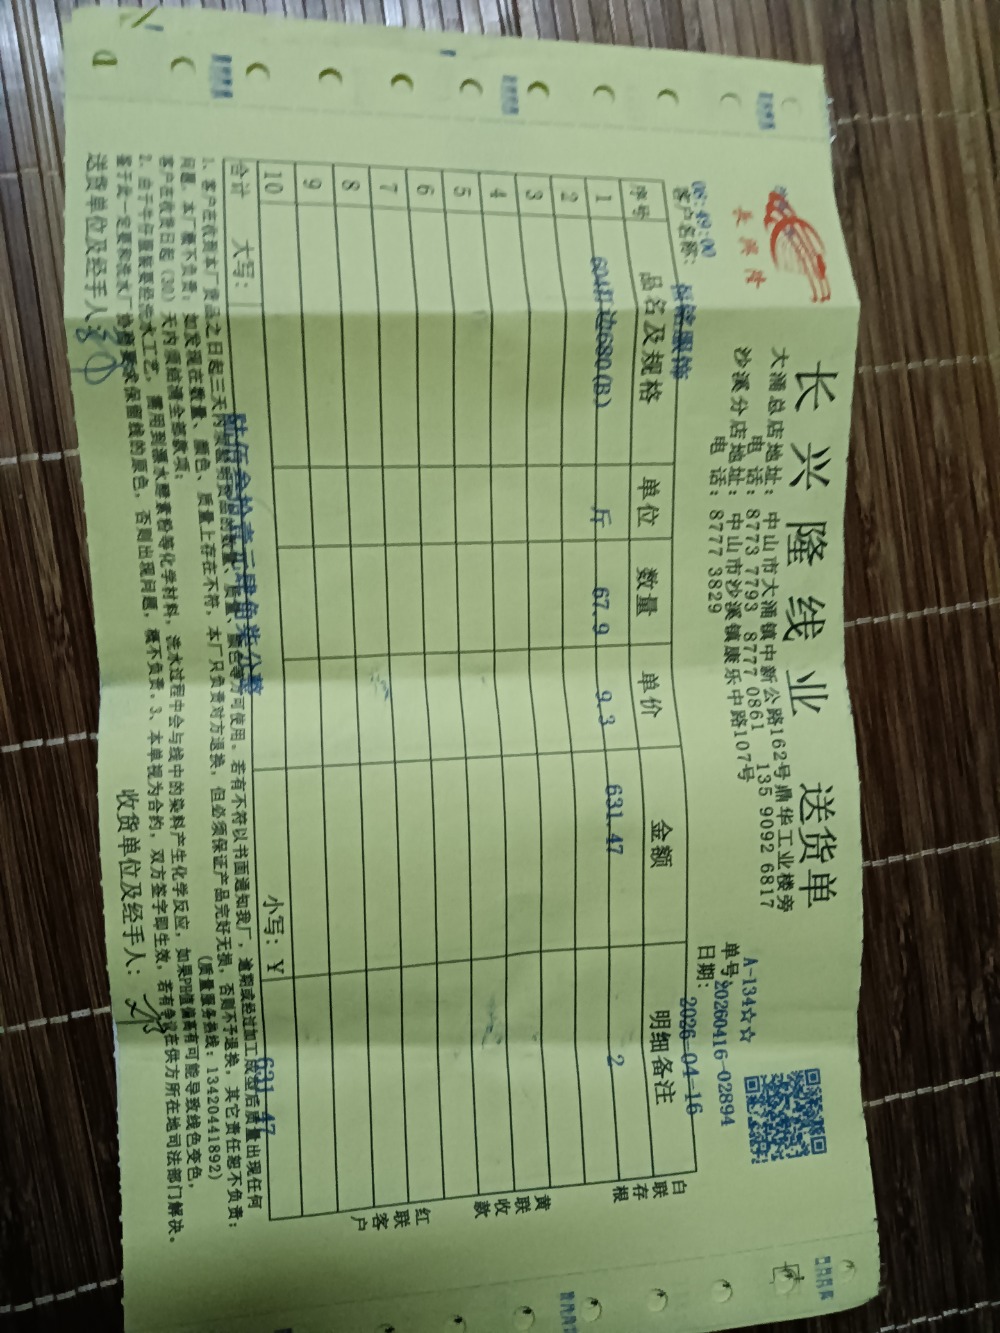 長興隆
长兴隆线业 送货单
大涌总店地址：中山市大涌镇中新公路162号鼎华工业楼旁
电话：8773 7793 8777 0861 135 9092 6817
沙溪分店地址：中山市沙溪镇康乐中路107号
电话：8777 3829
A-134☆☆
单号：20260416-02894
08:49:00
客户名称：
服饰
日期：2026-04-16
序号 品名及规格 单位 数量 单价 金额 明细备注
1 604打边680(B) 斤 67.9 9.3 631.47 2
2
3
4
5
6
7
8
9
10
合计 大写：陆佰叁拾壹元肆角柒分整 小写：￥ 631.47
白联存根
黄联收款
红联客户
1、客户在收到本厂货品之日起三天内须验明货品的数量、质量、颜色等方可使用。若有不符以书面通知我厂，逾期或经过加工成型后质量出现任何
问题，本厂概不负责；如发现在数量、颜色、质量上存在不符，本厂只负责对方退换，但必须保证产品完好无损，否则不予退换，其它责任恕不负责；
客户在收货日起（30）天内须结清全部款项； （质量服务热线：13420441892）
2、由于牛仔服装要经洗水工艺，需用到漂水酵素粉等化学材料，洗水过程中会与线中的染料产生化学反应，如果PH值偏高有可能导致线色变色，
鉴于此一定要和洗水厂协商要求保留线的原色，否则出现问题，概不负责；3、本单视为合约，双方签字即生效，若有争议在供方所在地司法部门解决。
送货单位及经手人： 收货单位及经手人：